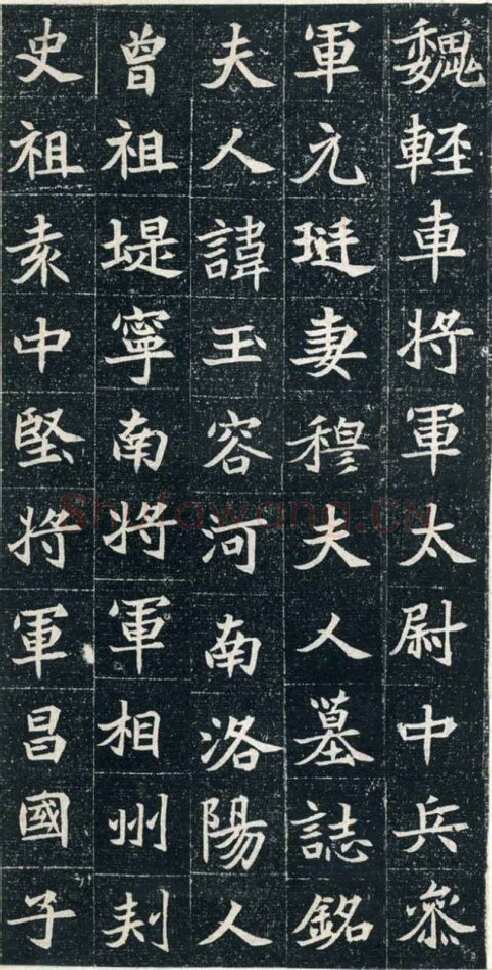 魏輕車將軍太尉中兵叅
軍元珽妻穆夫人墓誌銘
夫人諱玉容河南洛陽人
曾祖堤寧南將軍相州刾
史祖袁中堅將軍昌國子
Shufawang.CN